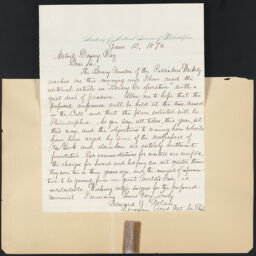 Academy of Natural Sciences of Philadelphia
June 12, 1876
Melvil Dewey Esq
Dear Sir:
The Library Number of the Publishers Weekly
reached me this morning and I have read the
editorial article on Library Co-operation with a
great deal of pleasure. Allow me to hope that the
proposed conference will be held at the time named
in the Call, and that the place selected will be
Philadelphia. As you say, all roads, this year, set
this way, and the objections to coming here which
have been urged by some of the newspapers of
New York and elsewhere are entirely without
foundation. Our accommodations for visitors are ample,
the charges for board and lodging are not greater than
they were two or three years ago, and the amount of information
to be gained from our great World's Fair is
incalculable. Wishing entire success for the proposed
movement I remain, Yours Very Truly
Edward J. Nolan
Librarian Acad Nat. Sci. Phila